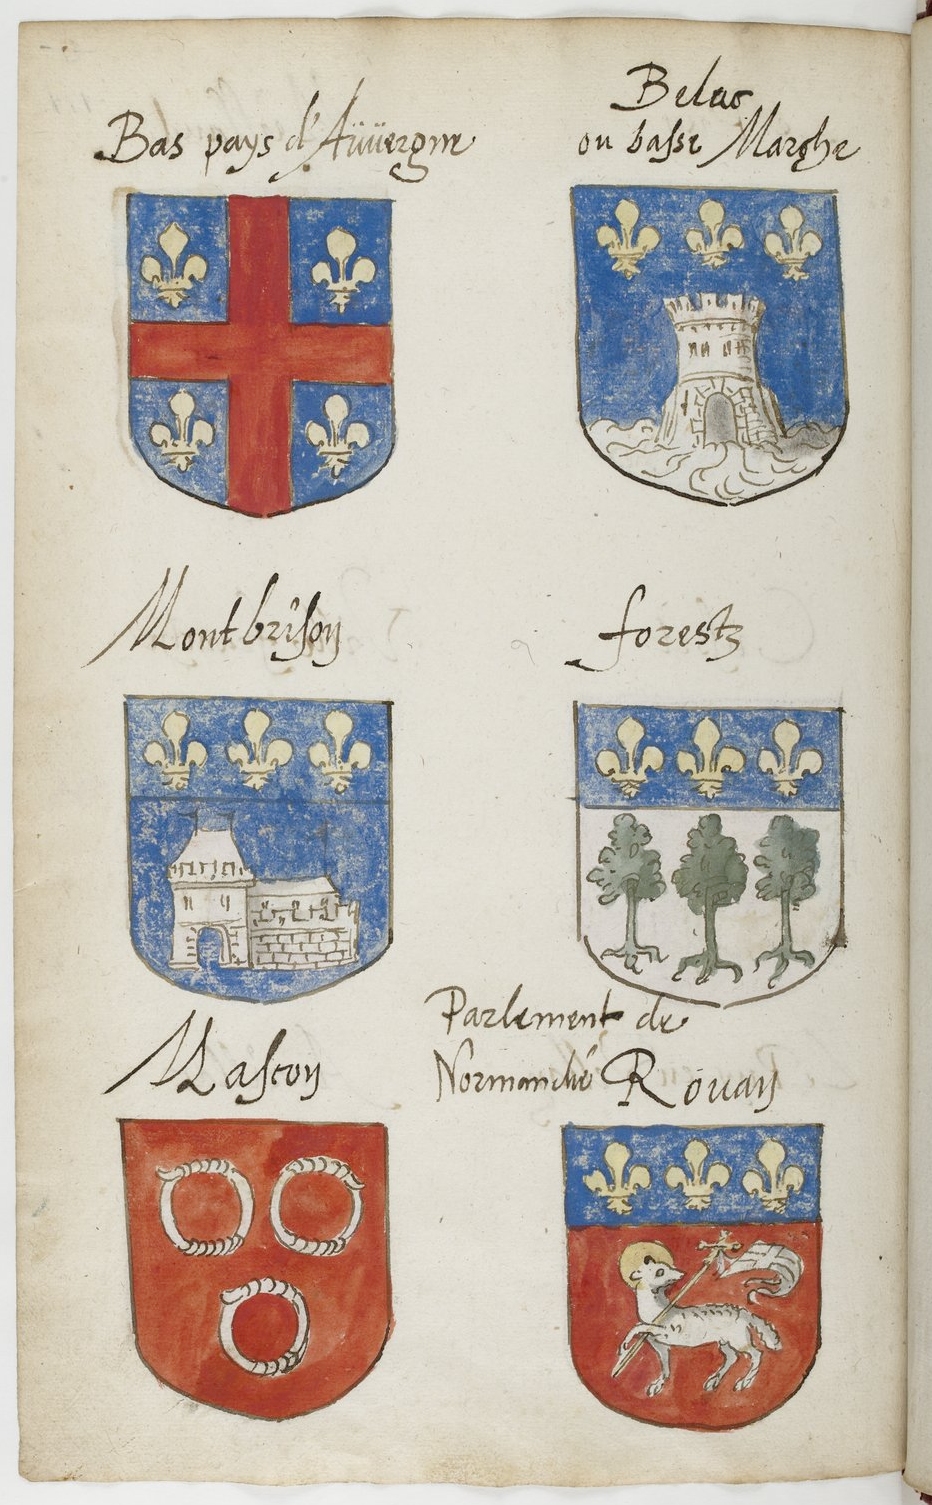 Bas pays d'Aüüergne
Belac
ou basse Marche
Montbrison
forestz
Mascon
Parlement de
Normandie Rouan